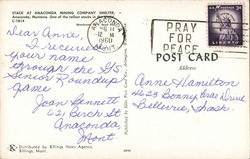 STACK AT ANACONDA MINING COMPANY SMELTER,
Anaconda, Montana. One of the tallest stacks in the
C-1814
Dear Anne,
I received
your name
through the
Senior Roundup
Game
Joan Bennett
621 Birch St
Anaconda,
Mont
ANACONDA
12 M
1960
MONT
PRAY
FOR
PEACE
POST CARD
Address
Anne Hamilton
4623 Bonny Brae Drive
Bellevue, Wash.
Distributed by Billings News Agency,
Billings, Mont.